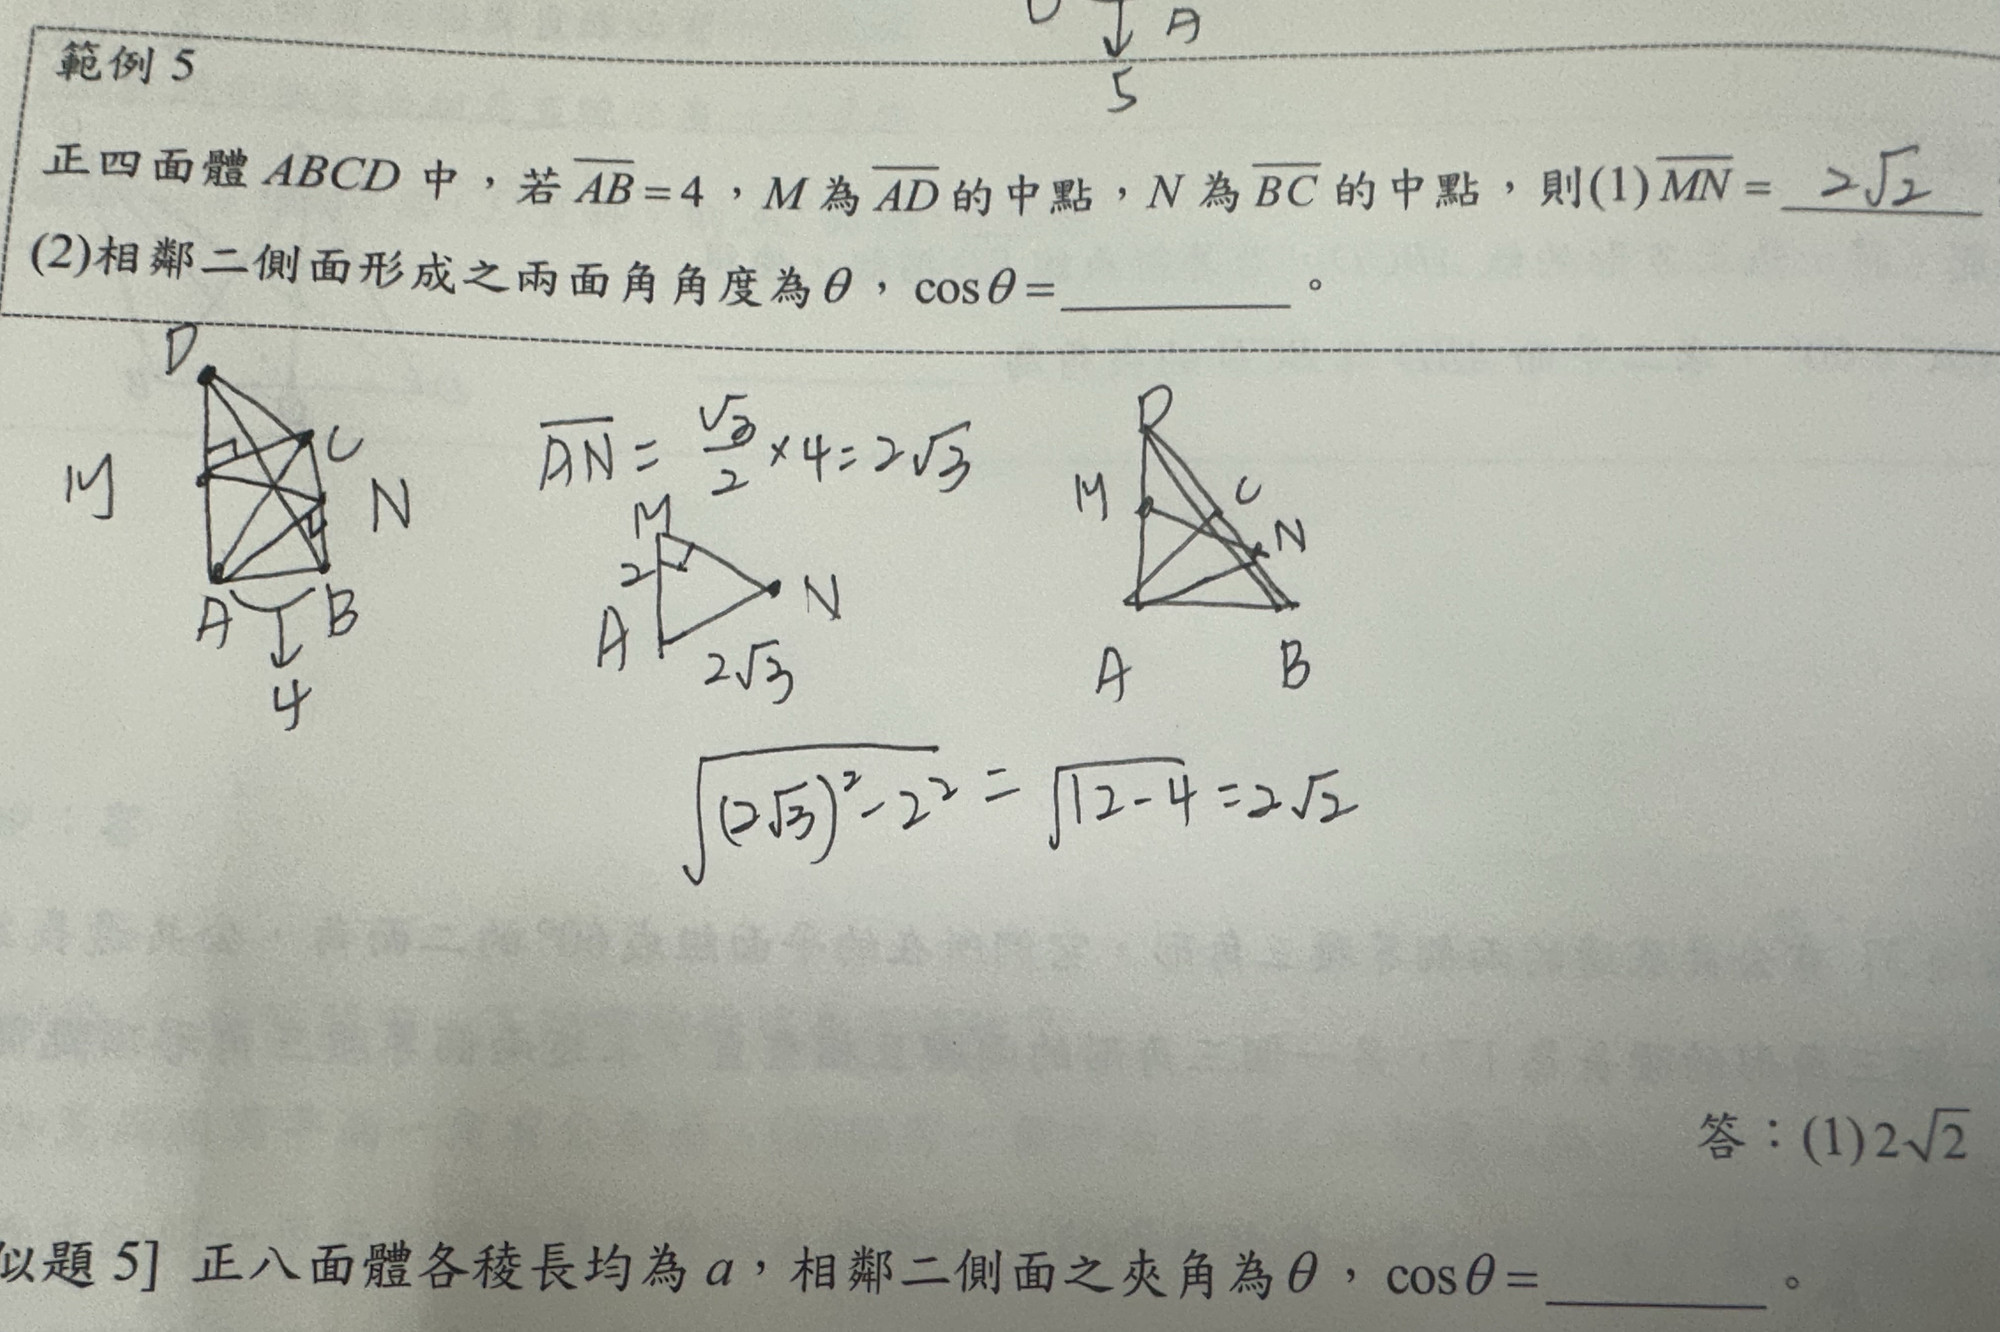 A
5
範例 5
正四面體 ABCD 中，若 $\overline{AB}$ = 4，M 為 $\overline{AD}$ 的中點，N 為 $\overline{BC}$ 的中點，則(1) $\overline{MN}$ = 2√2
(2)相鄰二側面形成之兩面角角度為 θ，cos θ = ________。
D
C
M
N
A
B
4
$\overline{AN}$ = $\frac{√3}{2}$ × 4 = 2√3
M
2
N
A
2√3
D
M
C
N
A
B
$\sqrt{(2√3)^2 - 2^2}$ = $\sqrt{12-4}$ = 2√2
答：(1) 2√2
似題 5] 正八面體各稜長均為 a，相鄰二側面之夾角為 θ，cos θ = ________。